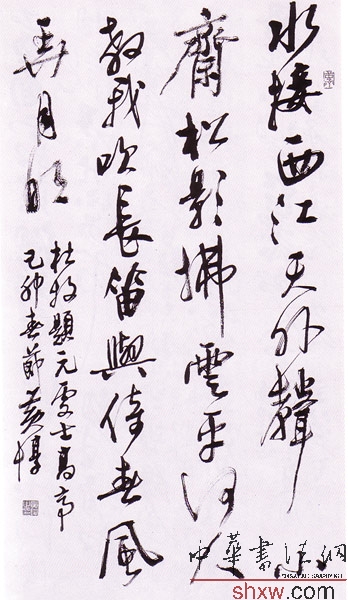 水接西江天外聲小
齋松影拂雲平何人
教我吹長笛與倚春風
弄月明
杜牧題元處士高亭
己卯春節黃惇
中華書法網
shxw.com